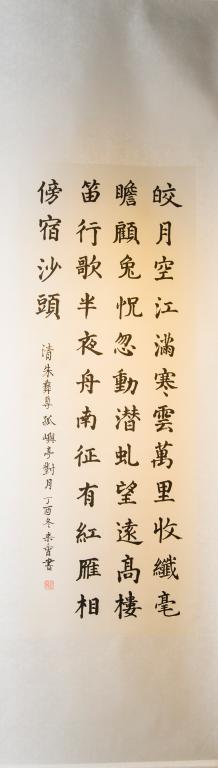 皎月空江滿寒雲萬里收纖毫
瞻顧兔怳忽動潛虬望遠高樓
笛行歌半夜舟南征有紅雁相
傍宿沙頭
清朱彝尊孤嶼亭對月丁酉冬書